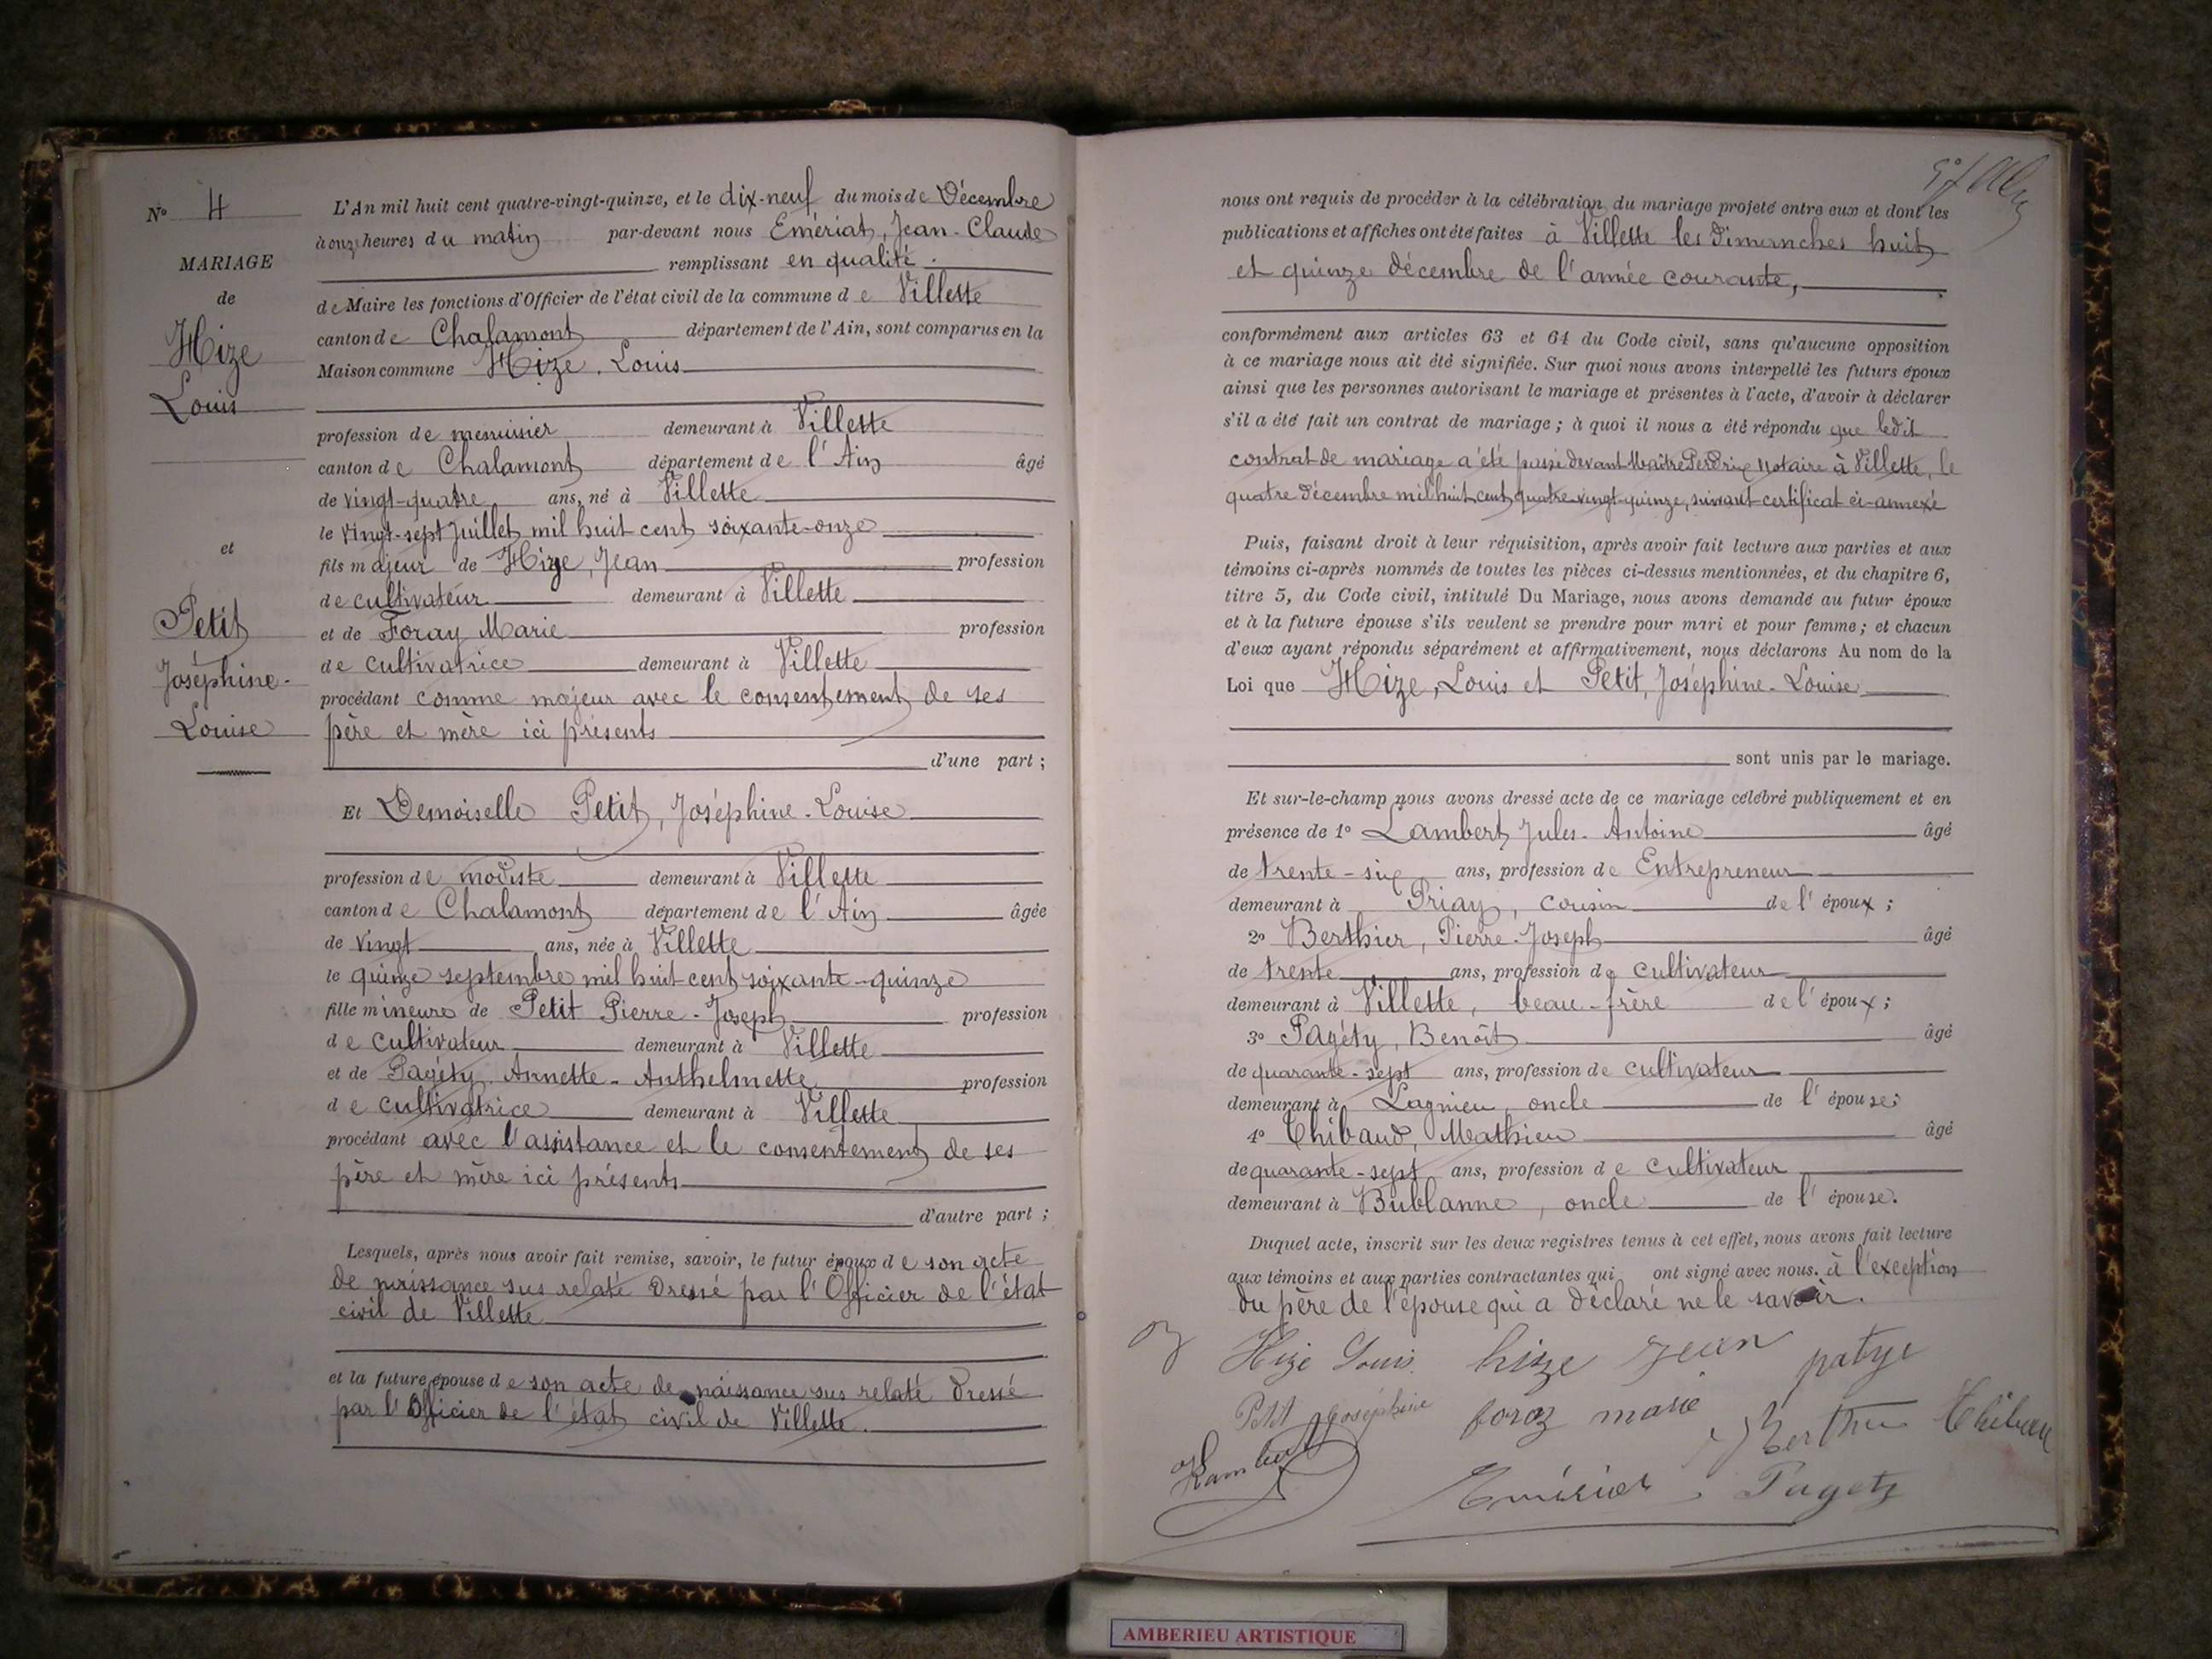 N° 4
MARIAGE
de
Hize
Louis
et
Petit
Joséphine-
Louise
L'An mil huit cent quatre-vingt-quinze, et le dix-neuf du mois de Décembre
à onze heures du matin par-devant nous Emériat, Jean-Claude
remplissant en qualité
de Maire les fonctions d'Officier de l'état civil de la commune de Villette
canton de Chalamont département de l'Ain, sont comparus en la
Maison commune Hize, Louis
profession de menuisier demeurant à Villette
canton de Chalamont département de l'Ain âgé
de vingt-quatre ans, né à Villette
le vingt-sept Juillet mil huit cent soixante-onze
fils majeur de Hize, Jean profession
de cultivateur demeurant à Villette
et de Foray Marie profession
de cultivatrice demeurant à Villette
procédant comme majeur avec le consentement de ses
père et mère ici présents
d'une part ;
Et Demoiselle Petit, Joséphine-Louise
profession de modiste demeurant à Villette
canton de Chalamont département de l'Ain âgée
de vingt ans, née à Villette
le quinze septembre mil huit cent soixante-quinze
fille mineure de Petit Pierre-Joseph profession
de cultivateur demeurant à Villette
et de Pagéty, Annette-Anthelmette profession
de cultivatrice demeurant à Villette
procédant avec l'assistance et le consentement de ses
père et mère ici présents
d'autre part ;
Lesquels, après nous avoir fait remise, savoir, le futur époux de son acte
de naissance sus relaté dressé par l'Officier de l'état
civil de Villette
et la future épouse de son acte de naissance sus relaté dressé
par l'Officier de l'état civil de Villette.
nous ont requis de procéder à la célébration du mariage projeté entre eux et dont les
publications et affiches ont été faites à Villette les dimanches huit
et quinze décembre de l'année courante,
conformément aux articles 63 et 64 du Code civil, sans qu'aucune opposition
à ce mariage nous ait été signifiée. Sur quoi nous avons interpellé les futurs époux
ainsi que les personnes autorisant le mariage et présentes à l'acte, d'avoir à déclarer
s'il a été fait un contrat de mariage ; à quoi il nous a été répondu que ledit
contrat de mariage a été passé devant Maître Perdrix Notaire à Villette, le
quatre décembre mil huit cent quatre-vingt-quinze, suivant certificat ci-annexé
Puis, faisant droit à leur réquisition, après avoir fait lecture aux parties et aux
témoins ci-après nommés de toutes les pièces ci-dessus mentionnées, et du chapitre 6,
titre 5, du Code civil, intitulé Du Mariage, nous avons demandé au futur époux
et à la future épouse s'ils veulent se prendre pour mari et pour femme ; et chacun
d'eux ayant répondu séparément et affirmativement, nous déclarons Au nom de la
Loi que Hize, Louis et Petit, Joséphine-Louise
sont unis par le mariage.
Et sur-le-champ nous avons dressé acte de ce mariage célébré publiquement et en
présence de 1° Lambert Jules-Antoine âgé
de trente-six ans, profession de Entrepreneur
demeurant à Priay, cousin de l'époux ;
2° Berthier, Pierre-Joseph âgé
de trente ans, profession de cultivateur
demeurant à Villette, beau-frère de l'époux ;
3° Pagéty, Benoît âgé
de quarante-sept ans, profession de cultivateur
demeurant à Lagnieu oncle de l'épouse ;
4° Thibaud, Mathieu âgé
de quarante-sept ans, profession de cultivateur
demeurant à Bublanne, oncle de l'épouse.
Duquel acte, inscrit sur les deux registres tenus à cet effet, nous avons fait lecture
aux témoins et aux parties contractantes qui ont signé avec nous. à l'exception
du père de l'épouse qui a déclaré ne le savoir.
Hize Louis hize Jean
Petit Joséphine foroz marie Thibau
Emériat Pagety
AMBERIEU ARTISTIQUE